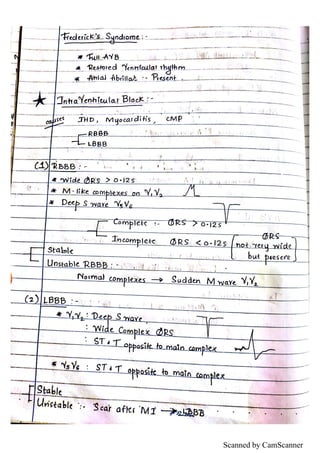 Frederick's Syndrome :-
* Full AVB
* Restored Ventricular rhythm
* Atrial fibrillatn :- Present.
★ IntraVentricular Block :-
causes IHD, Myocarditis, CMP
RBBB
LBBB
(1) RBBB :-
* Wide QRS > 0.12s
* M-like complexes on V1, V2
* Deep S wave V5 V6
Complete :- QRS > 0.12s
Incomplete QRS < 0.12s [QRS not very wide but present]
Stable
Unstable RBBB :-
Normal complexes → Sudden M wave V1, V2
(2) LBBB :-
* V1, V2 : Deep S wave
: Wide Complex QRS
: ST & T opposite to main complex
* V5 V6 : ST & T opposite to main complex
Stable
Unstable :- Scar after MI → LBBB
Scanned by CamScanner